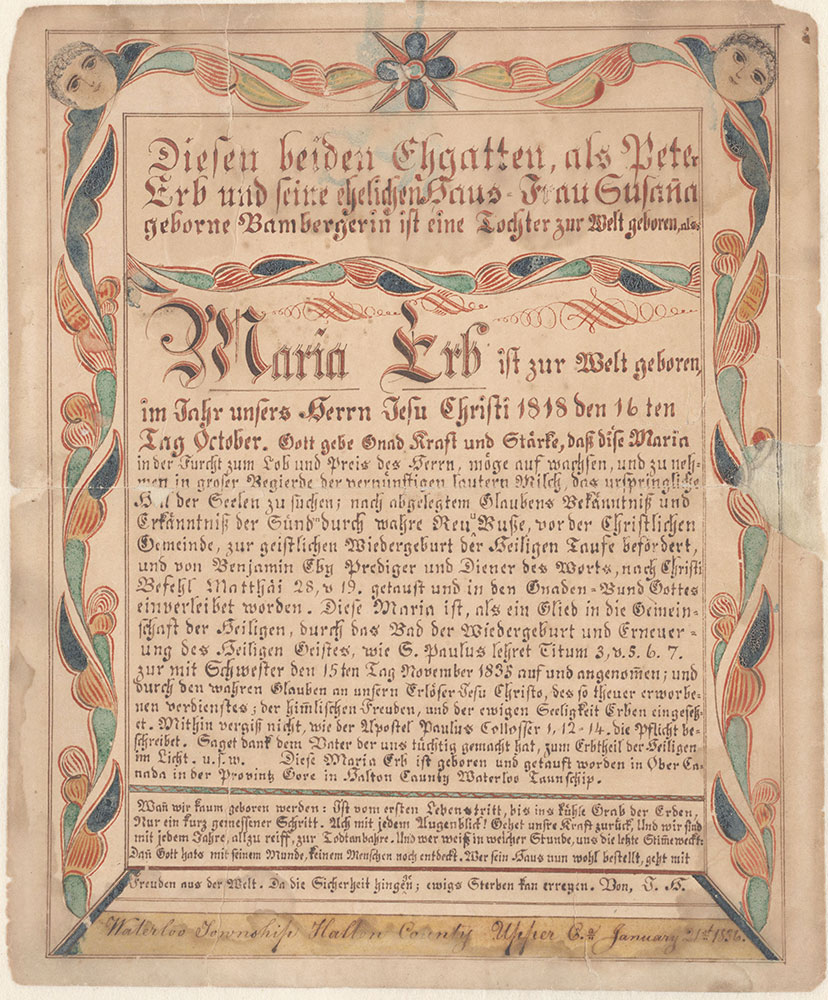 Diesen beiden Ehgatten, als Peter
Erb und seine ehelichen Haus-Frau Susan̄a
geborne Bambergerin̄ ist eine Tochter zur Welt geboren, als:
Maria Erb ist zur Welt geboren,
im Jahr unsers Herrn Jesu Christi 1818 den 16 ten
Tag October. Gott gebe Gnad Kraft und Stärke, daß dise Maria
in der Furcht zum Lob und Preis des Herrn, möge auf wachsen, und zu neh-
men in groser Begierde der vernünftigen lautern Milch, das urspringliche
der Seelen zu suchen; nach abgelegtem Glaubens Bekänntniß und
Erkänntniß der Sünd" durch wahre Reu u Buße, vor der Christlichen
Gemeinde, zur geistlichen Wiedergeburt der Heiligen Taufe befördert,
und von Benjamin Eby Prediger und Diener des Worts, nach Christi
Befehl Matthäi 28, v 19. getauft und in den Gnaden-Bund Gottes
einverleibet worden. Diese Maria ist, als ein Glied in die Gemein-
schaft der Heiligen, durch das Bad der Wiedergeburt und Erneuer-
ung des Heiligen Geistes, wie S. Paulus lehret Titum 3, v. 5. 6. 7.
zur mit Schwester den 15ten Tag November 1835 auf und angenom̄en; und
durch den wahren Glauben an unsern Erlöser Jesu Christo, des so theuer erworbe-
nen verdienstes; der him̄lischen Freuden, und der ewigen Seeligkeit Erben eingesetz-
et. Mithin vergiß nicht, wie der Apostel Paulus Collosser 1, 12-14. die Pflicht be-
schreibet. Saget dank dem Vater der uns tüchtig gemacht hat, zum Erbtheil der Heiligen
im Licht. u.s.w. Diese Maria Erb ist geboren und getauft worden in Ober Ca-
nada in der Provintz Gore in Halton Caunty Waterloo Taunschip.
Wan̄ wir kaum geboren werden: Ist vom ersten Lebenstritt, bis ins kühle Grab der Erden,
Nur ein kurz gemessner Schritt. Ach mit jedem Augenblick! Gehet unsre Kraft zurück, Und wir sind
mit jedem Jahre, allzu reiff, zur Todtanbahre. Und wer weiß in welcher Stunde, uns die letzte Stim̄e weckt:
Dan̄ Gott hats mit seinem Munde, keinem Menschen noch entdeckt. Wer sein Haus nun wohl bestellt, geht mit
Freuden aus der Welt. Da die Sicherheit hingegen; ewigs Sterben kan erregen. Von, J. H.
Waterloo Township Halton County Upper Ca. January 21st 1836.